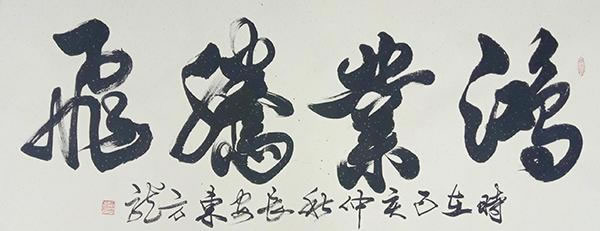 鴻業騰飛
時在己亥仲秋長安東方龍